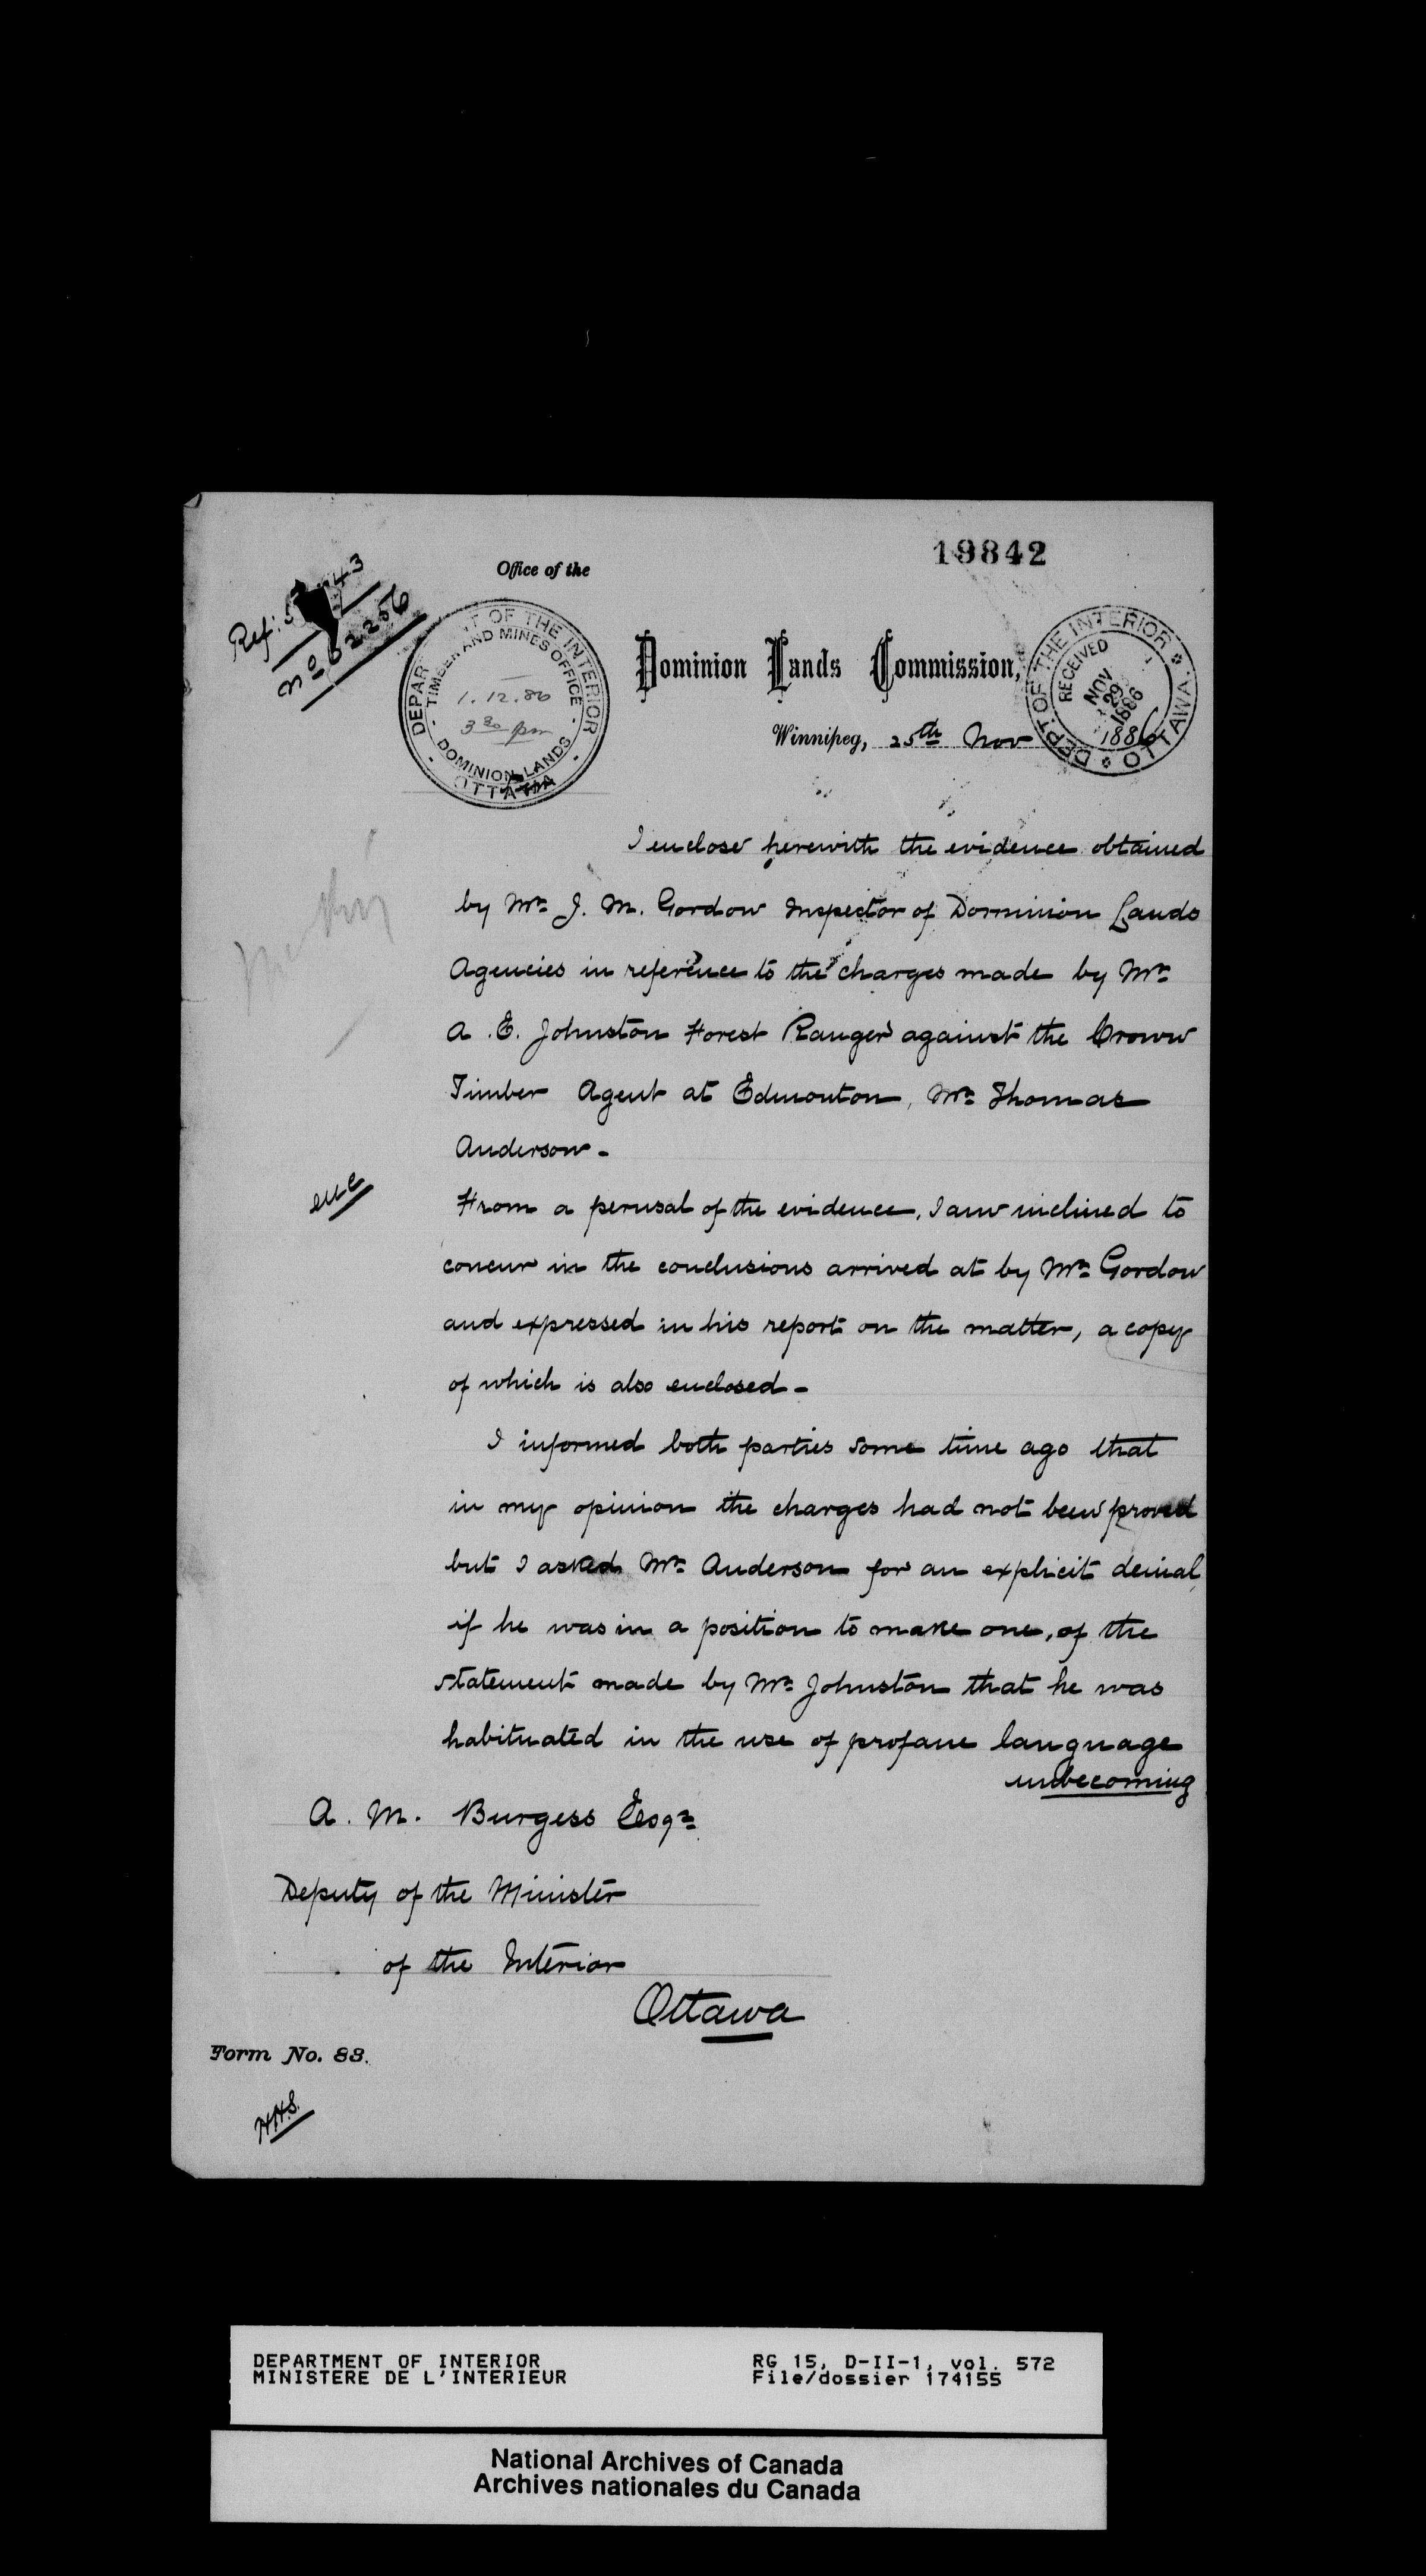 19842
Office of the
No 62256
DEPAR T OF THE INTERIOR
TIMBER AND MINES OFFICE
1.12.86
3 30 pm
DOMINION LANDS
OTTAWA
Dominion Lands Commission,
DEPT. OF THE INTERIOR OTTAWA
RECEIVED
NOV
29
1886
Winnipeg, 25th Nov 1886
I enclose herewith the evidence obtained
by Mr J. M. Gordon Inspector of Dominion Lands
Agencies in reference to the charges made by Mr
A. E. Johnston Forest Ranger against the Crown
Timber Agent at Edmonton, Mr Thomas
Anderson -
enc
From a perusal of the evidence, I am inclined to
concur in the conclusions arrived at by Mr Gordon
and expressed in his report on the matter, a copy
of which is also enclosed -
I informed both parties some time ago that
in my opinion the charges had not been proved
but I asked Mr Anderson for an explicit denial,
if he was in a position to make one, of the
statement made by Mr Johnston that he was
habituated in the use of profane language
unbecoming
A. M. Burgess Esqr
Deputy of the Minister
of the Interior
Ottawa
Form No. 83.
H.H.S.
DEPARTMENT OF INTERIOR
MINISTERE DE L'INTERIEUR
RG 15, D-II-1, vol. 572
File/dossier 174155
National Archives of Canada
Archives nationales du Canada